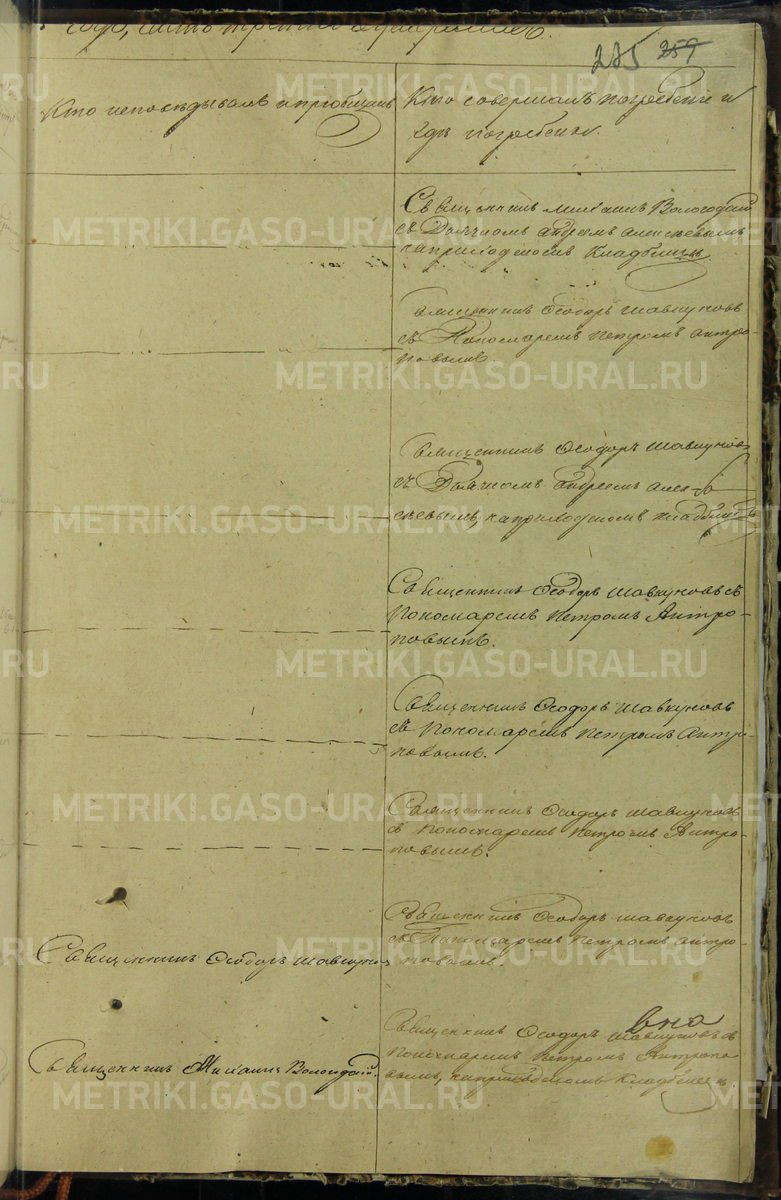 года, часть третия о умершихъ.
225 259
Кто исповѣдывалъ и пріобщалъ
Кто совершалъ погребеніе и
гдѣ погребены.
Священникъ Михаилъ Вологодскій
съ Дьячкомъ Андреемъ Алексѣевымъ
на приходскомъ кладбищѣ.
Священникъ Ѳеодоръ Шавкуновъ
съ Пономаремъ Петромъ Антро-
повымъ.
Священникъ Ѳеодоръ Шавкуновъ
съ Дьячкомъ Андреемъ Алек-
сѣевымъ, на приходскомъ кладбищѣ
Священникъ Ѳеодоръ Шавкуновъ съ
Пономаремъ Петромъ Антро-
повымъ.
Священникъ Ѳеодоръ Шавкуновъ
съ Пономаремъ Петромъ Антро-
повымъ.
Священникъ Ѳеодоръ Шавкуновъ
съ Пономаремъ Петромъ Антро-
повымъ.
Священникъ Ѳеодоръ Шавкуновъ
Священникъ Ѳеодоръ Шавкуновъ
съ Пономаремъ Петромъ Антро-
повымъ.
Священникъ Михаилъ Вологодскій.
Священникъ Ѳеодоръ Шавкуновъ съ
Пономаремъ Петромъ Антропо-
вымъ, на приходскомъ кладбищѣ.
METRIKI.GASO-URAL.RU